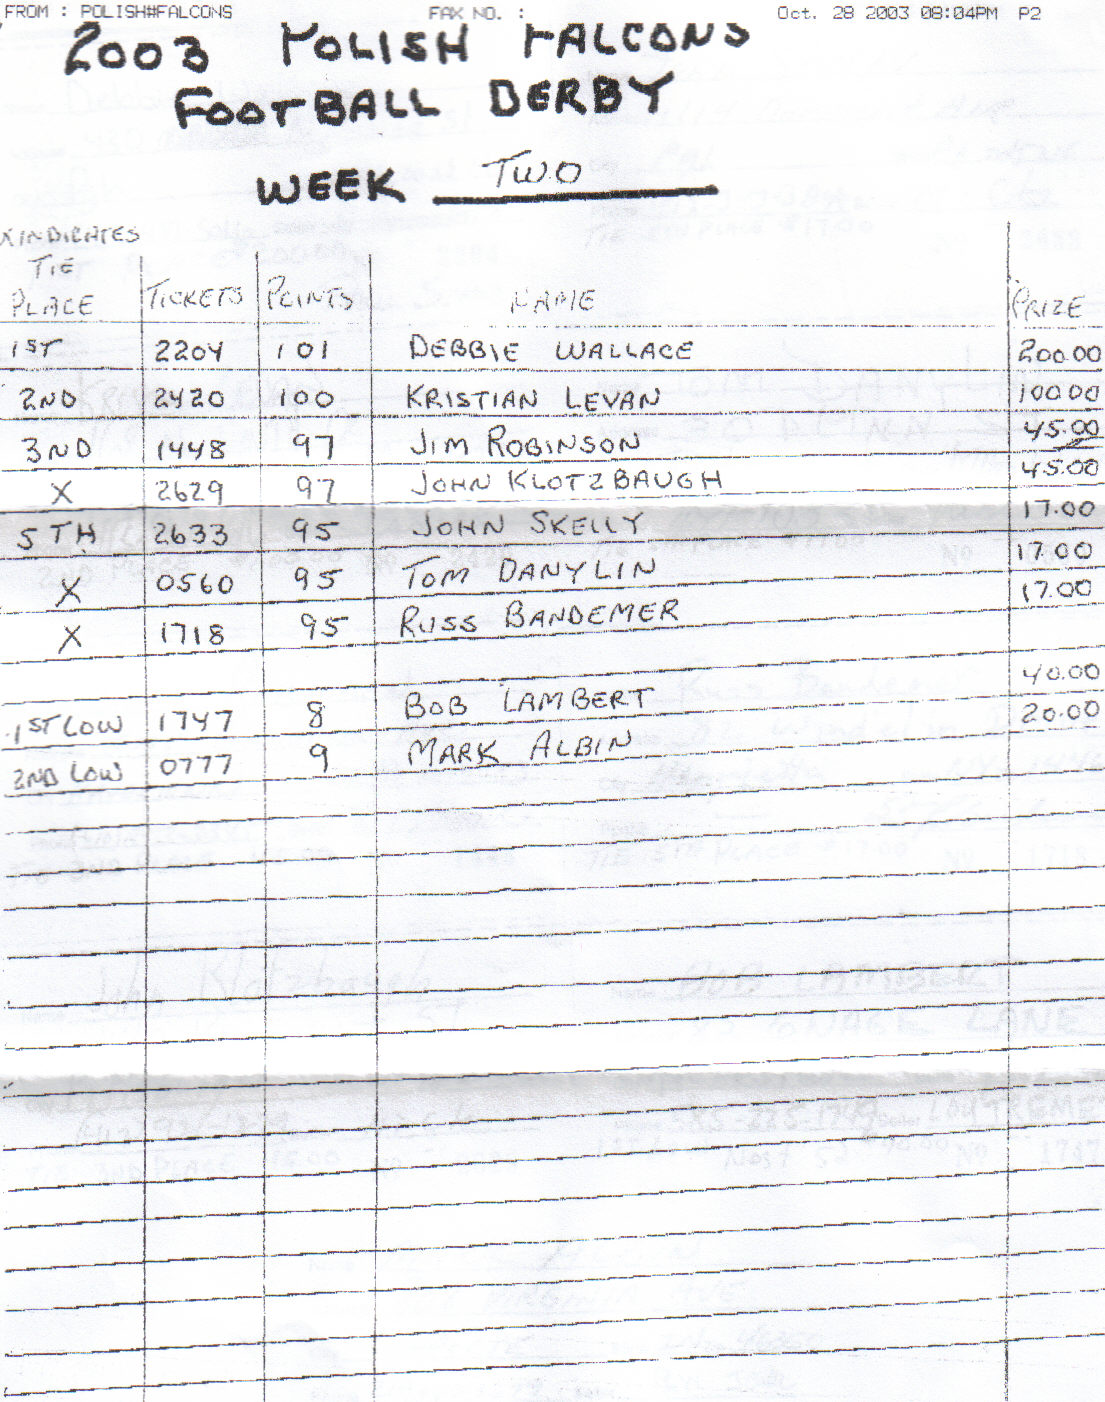 FROM : POLISH#FALCONS FAX NO. : Oct. 28 2003 08:04PM P2
2003 POLISH FALCONS
FOOTBALL DERBY
WEEK TWO
X INDICATES
TIE
PLACE TICKETS POINTS NAME PRIZE
1ST 2204 101 DEBBIE WALLACE 200.00
2ND 2420 100 KRISTIAN LEVAN 100.00
3ND 1448 97 JIM ROBINSON 45.00
X 2629 97 JOHN KLOTZBAUGH 45.00
5TH 2633 95 JOHN SKELLY 17.00
X 0560 95 TOM DANYLIN 17.00
X 1718 95 RUSS BANDEMER 17.00
1ST LOW 1747 8 BOB LAMBERT 40.00
2ND LOW 0777 9 MARK ALBIN 20.00